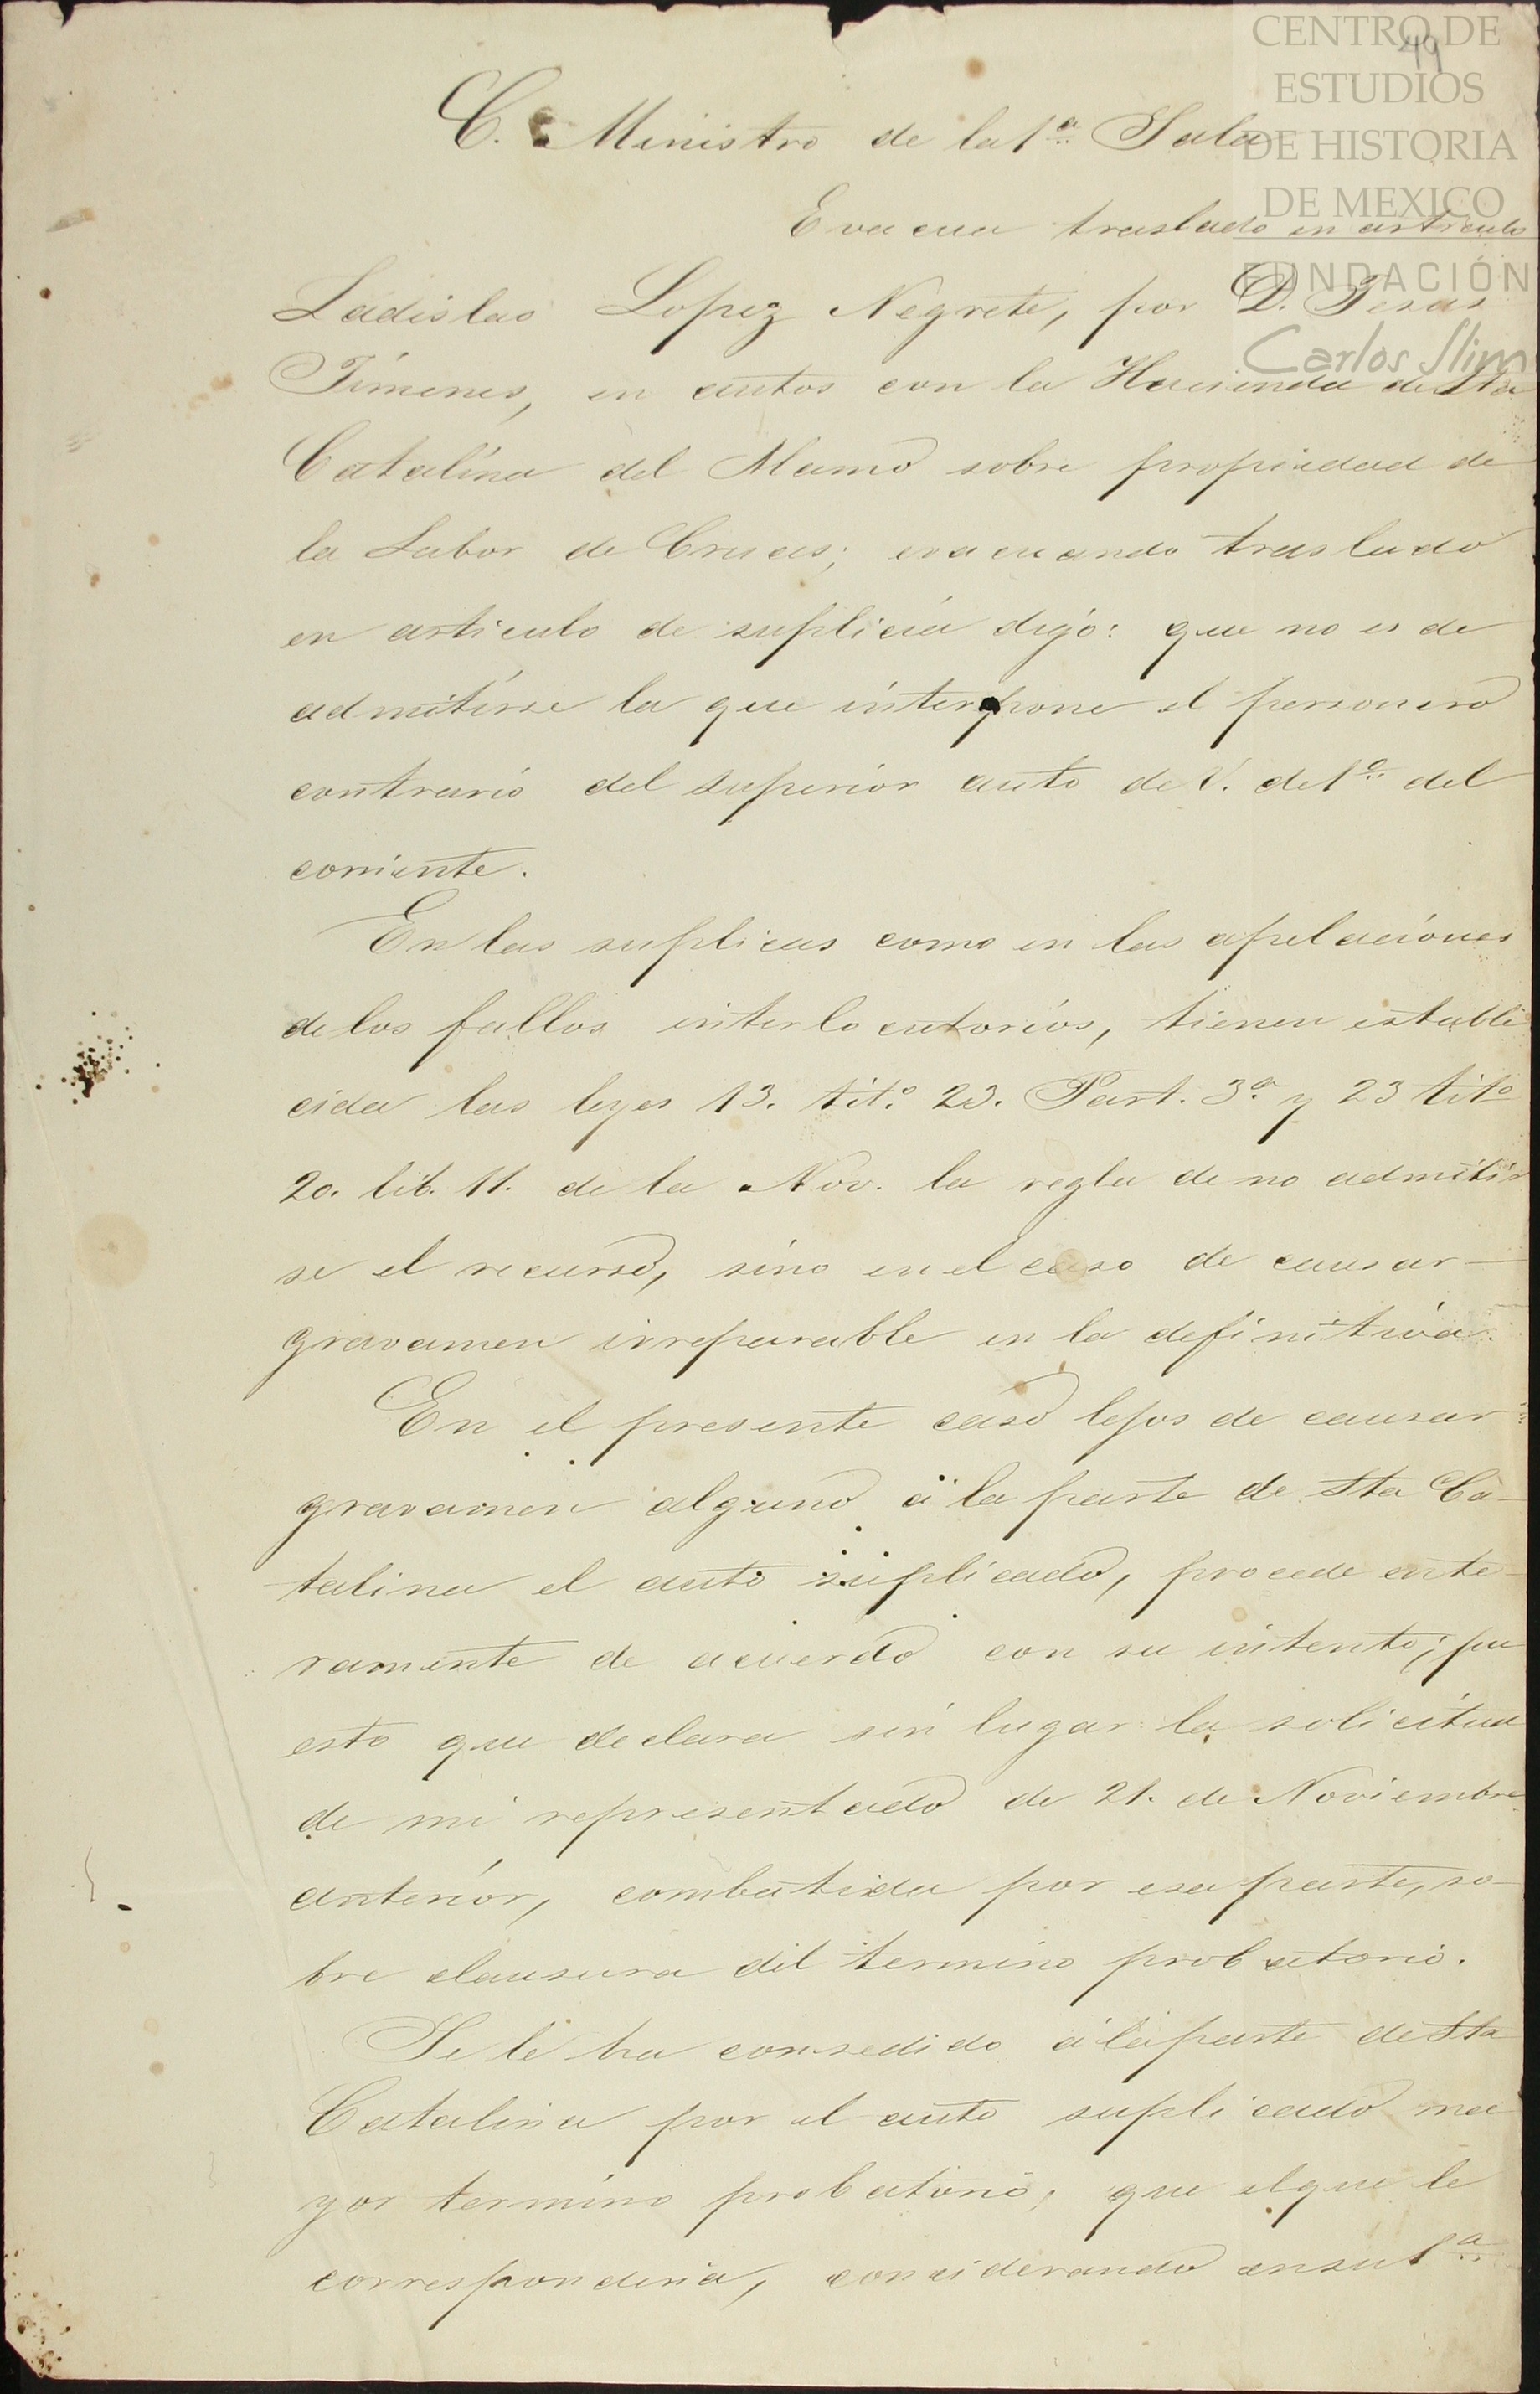 CENTRO DE
ESTUDIOS
DE HISTORIA
DE MEXICO
FUNDACIÓN
Carlos Slim
49
C. Ministro de la 1ª Sala
Evacua traslado en articulo
Ladislao Lopez Negrete, por D. Jesus
Jimenes, en autos con la Hacienda de Sta
Catalina del Alamo sobre propiedad de
la Labor de Cruces; evacuando traslado
en articulo de suplica digo: que no es de
admitirse la que interpone el personero
contrario del superior auto de V. de 1º del
corriente.
En las suplicas como en las apelaciones
de los fallos interlocutorios, tienen estable
cida las leyes 13. tit.º 23. Part. 3.ª y 23 titº
20. lib. 11. de la Nov. la regla de no admitir
se el recurso, sino en el caso de causar
gravamen irreparable en la definitiva.
En el presente caso lejos de causar
gravamen alguno á la parte de Sta Ca-
talina el auto suplicado, procede ente-
ramente de acuerdo con su intento; pu
esto que declara sin lugar la solicitud
de mi representado de 21. de Noviembre
anterior, combatida por esa parte, so-
bre clausura del termino probatorio.
Se le ha consedido á la parte de Sta
Catalina por el auto suplicado ma
yor termino probatorio, que el que le
corresponderia, conciderando en su 1ª